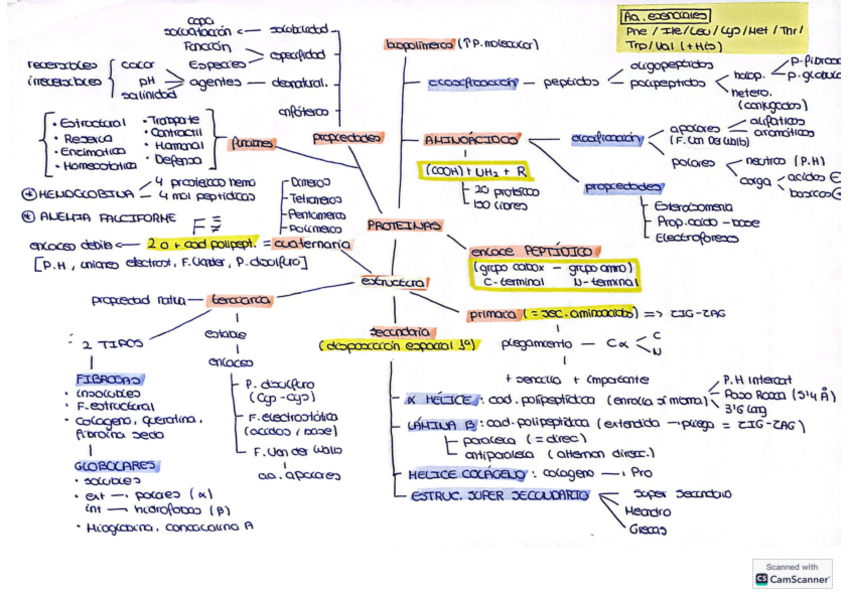 capa
solvatación ← solubilidad
Función
Especies ← especificidad
reversibles
irreversibles
calor
pH
salinidad
agentes ← desnatural.
anfóteros
propiedades
funciones
• Estructural
• Reserva
• Enzimática
• Homeostática
• Transporte
• Contráctil
• Hormonal
• Defensa
HEMOGLOBINA
4 proteicas hemo
4 mol peptídicas
ANEMIA FALCIFORME
Dímeros
Tetrámeros
Pentámeros
Polímeros
enlaces débiles ← 2 o + cad polipept. = cuaternaria
[P.H, uniones electrost, F.Vander, P. disulfuro]
biopolímeros (↑P. molecular)
clasificación — péptidos
oligopéptidos
polipéptidos
holop.
p. fibrosa
p. globular
hetero.
(conjugados)
Aa. esenciales
Phe / Ile / Leu / Lys / Met / Thr /
Trp / Val (+ His)
AMINOÁCIDOS
(COOH) + NH₂ + R
20 proteicos
150 libres
clasificación
apolares
(F. Van Der Walls)
alifáticos
aromáticos
polares
neutros (P.H)
carga
ácidos
básicos
propiedades
Estereoisomería
Prop. ácido - base
Electroforesis
PROTEINAS
enlace PEPTÍDICO
(grupo carbox — grupo amino)
C-terminal N-terminal
estructura
primaria (= sec. aminoácidos) => ZIG-ZAG
plegamiento — Cα
C
N
+ sencilla + importante
secundaria
(disposición espacial 1ª)
α HÉLICE : cad. polipeptídica (enrolla sí misma)
P.H intercat
Paso Rosca (5'4 Å)
3'6 (aa)
LÁMINA β : cad. polipeptídica (extendida → pliega = ZIG-ZAG)
paralela (= direc)
antiparalela (alternan direcc.)
HELICE COLÁGENO : colágeno → Pro
ESTRUC. SUPER SECUNDARIO
Super Secundario
Meandro
Grecas
propiedad nativa — terciaria
2 TIPOS
FIBROSAS
• insolubles
• F. estructural
• colágeno, queratina,
fibroína seda
GLOBULARES
• solubles
• ext → polares (α)
int → hidrófobas (β)
• Mioglobina, concacalina A
estable
enlaces
P. disulfuro
(Cys - Cys)
F. electrostática
(ácidos / base)
F. Van der Walls
aa. apolares
Scanned with
CS CamScanner